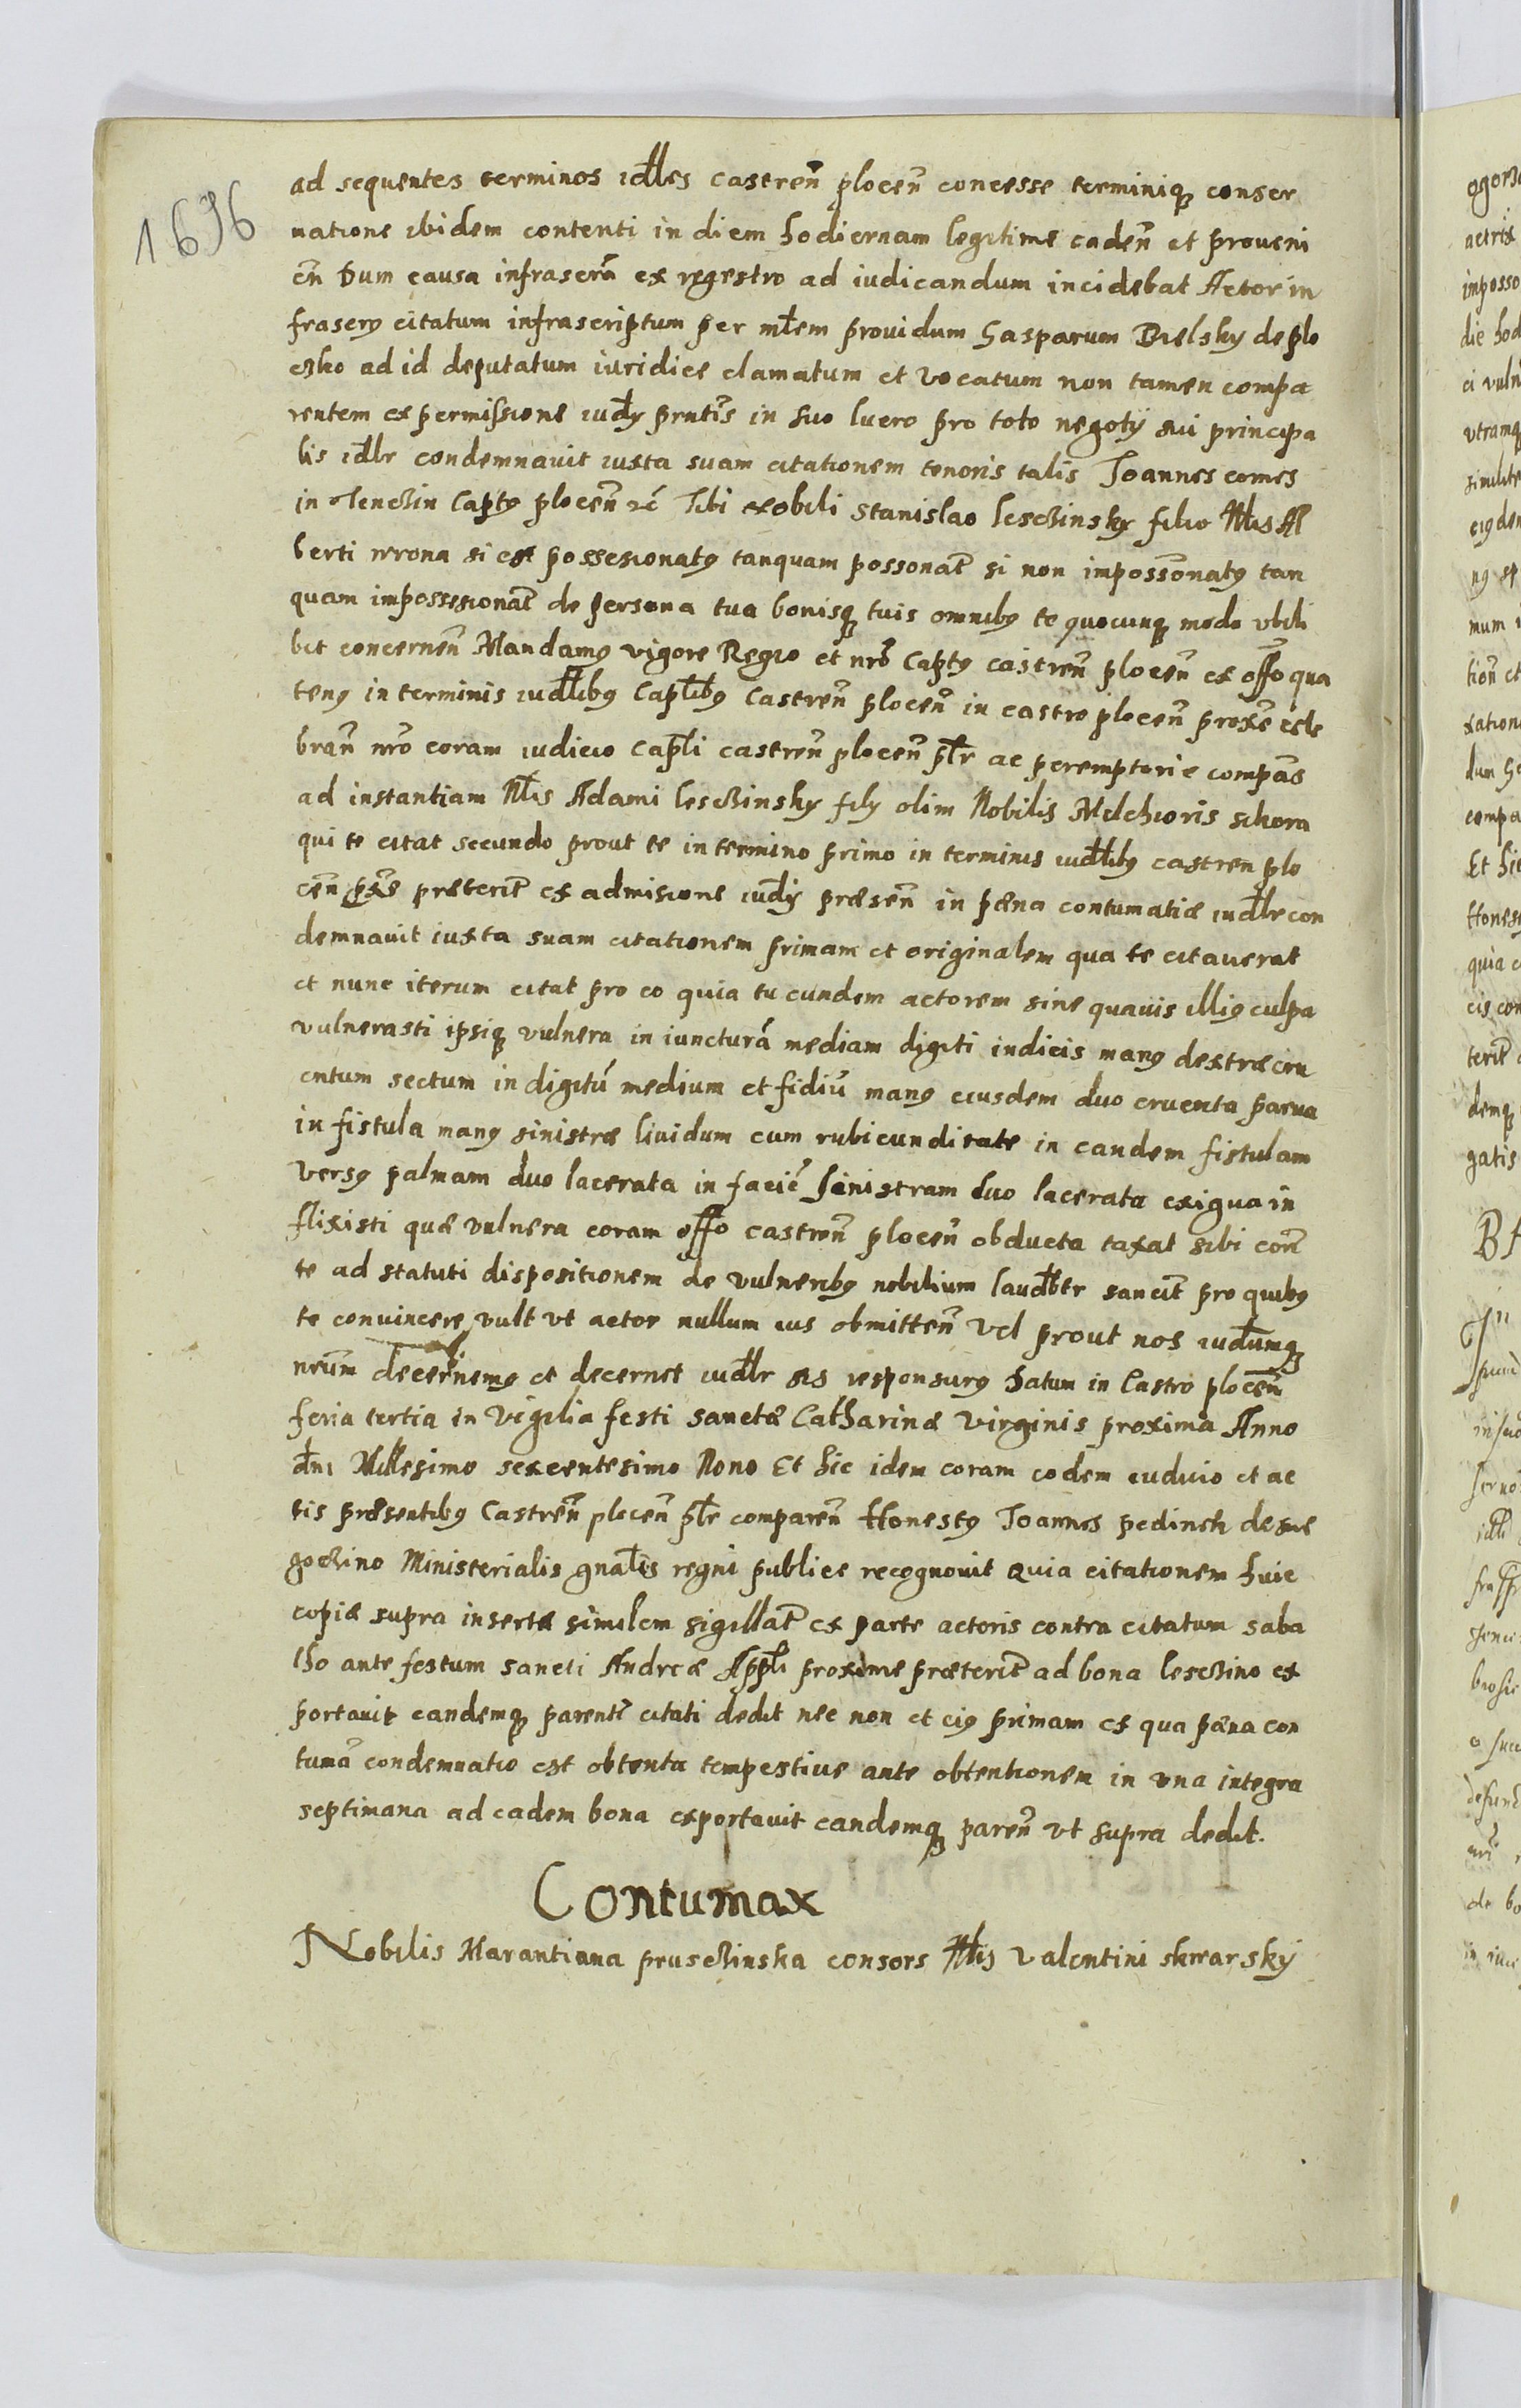 1696
ad sequentes terminos iudles castren̄ plocen̄ concesse terminiq; conser
uatione ibidem contenti in diem hodiernam legitime caden̄ et proueni
en̄ Dum causa infrascrā ex regestro ad iudicandum incidebat Actor in
frascrẏ citatum infrascriptum per mlem prouidum Gasparum Bielsky de plo
czko ad id deputatum iuridice clamatum et vocatum non tamen compa
rentem ex permissione iudy prntis in suo lucro pro toto negoty sui principa
lis idlr condemnauit iuxta suam citationem tenoris talis Joannes comes
in Tenczin Captg plocen̄ zc Tibi Nobili Stanislao lesczinsky filio Nlis Al
berti wrona si est possesionatg tanquam possonat̄ si non imposs̄onatg tan
quam impossesionat̄ de persona tua bonisq; tuis omnibg te quocunq; modo vbili
bet concernen̄ Mandamg vigore Regio et nrō Captg castren̄ plocen̄ ex offo qua
teng in terminis iudlibg Caplibg Castren̄ plocen̄ in castro plocen̄ proxē cele
bran̄ nrō coram iudicio capli castren̄ plocen̄ plr ac peremptorie compās
ad instantiam Nlis Adami lesczinsky fily olim Nobilis Melchioris sikora
qui te citat secundo prout te in termino primo in terminis iudlibg castren plo
cen̄ pxē præterit̄ ex admisione iudy præsen̄ in pæna contumatiæ iudlr con
demnauit iuxta suam citationem primam et originalem qua te citauerat
et nunc iterum citat pro eo quia tu eundem actorem sine quauis illig culpa
vulnerasti ipsiq; vulnera in iuncturā mediam digiti indicis mang dextræ cru
entum sectum in digitū mediū et fidiū mang eiusdem duo cruenta parua
in fistula mang sinistræ liuidum cum rubicunditate in eandem fistulam
versg palmam duo lacerata in faciē sinistram duo lacerata exigua in
flixisti quæ vulnera coram offo castren̄ plocen̄ obducta taxat sibi con̄
te ad statuti dispositionem de vulneribg nobilium laudbtr sancit̄ pro quibg
te conuincere vult vt actor nullum ius obmitten̄ vel prout nos iudumq;
nrūm decernemg et decernet iudlr sis responsurg Datum in Castro plocen̄
feria tertia in vigilia festi sanctæ Catharinæ virginis proxima Anno
dni Millesimo sexcentesimo Nono Et hic idem coram eodem iudicio et ac
tis præsentibg Castren̄ plocen̄ plr comparen̄ Honestg Joannes pedinek de sme
goczino Ministerialis gnalis regni publice recognouit Quia citationem huic
copiæ supra insertæ similem sigillat̄ ex parte actoris contra citatum saba
tho ante festum sancti Andreæ Appli proxime præterit̄ ad bona lesczino ex
portauit eandemq; parenti citati dedit nec non et eig primam ex qua pæna con
tumā condemnatio est obtenta tempestiue ante obtentionem in vna integra
septimana ad eadem bona exportauit eandemq; paren̄ vt supra dedit.
Contumax
Nobilis Marantiana prusczinska consors Nlis Valentini skwarsky